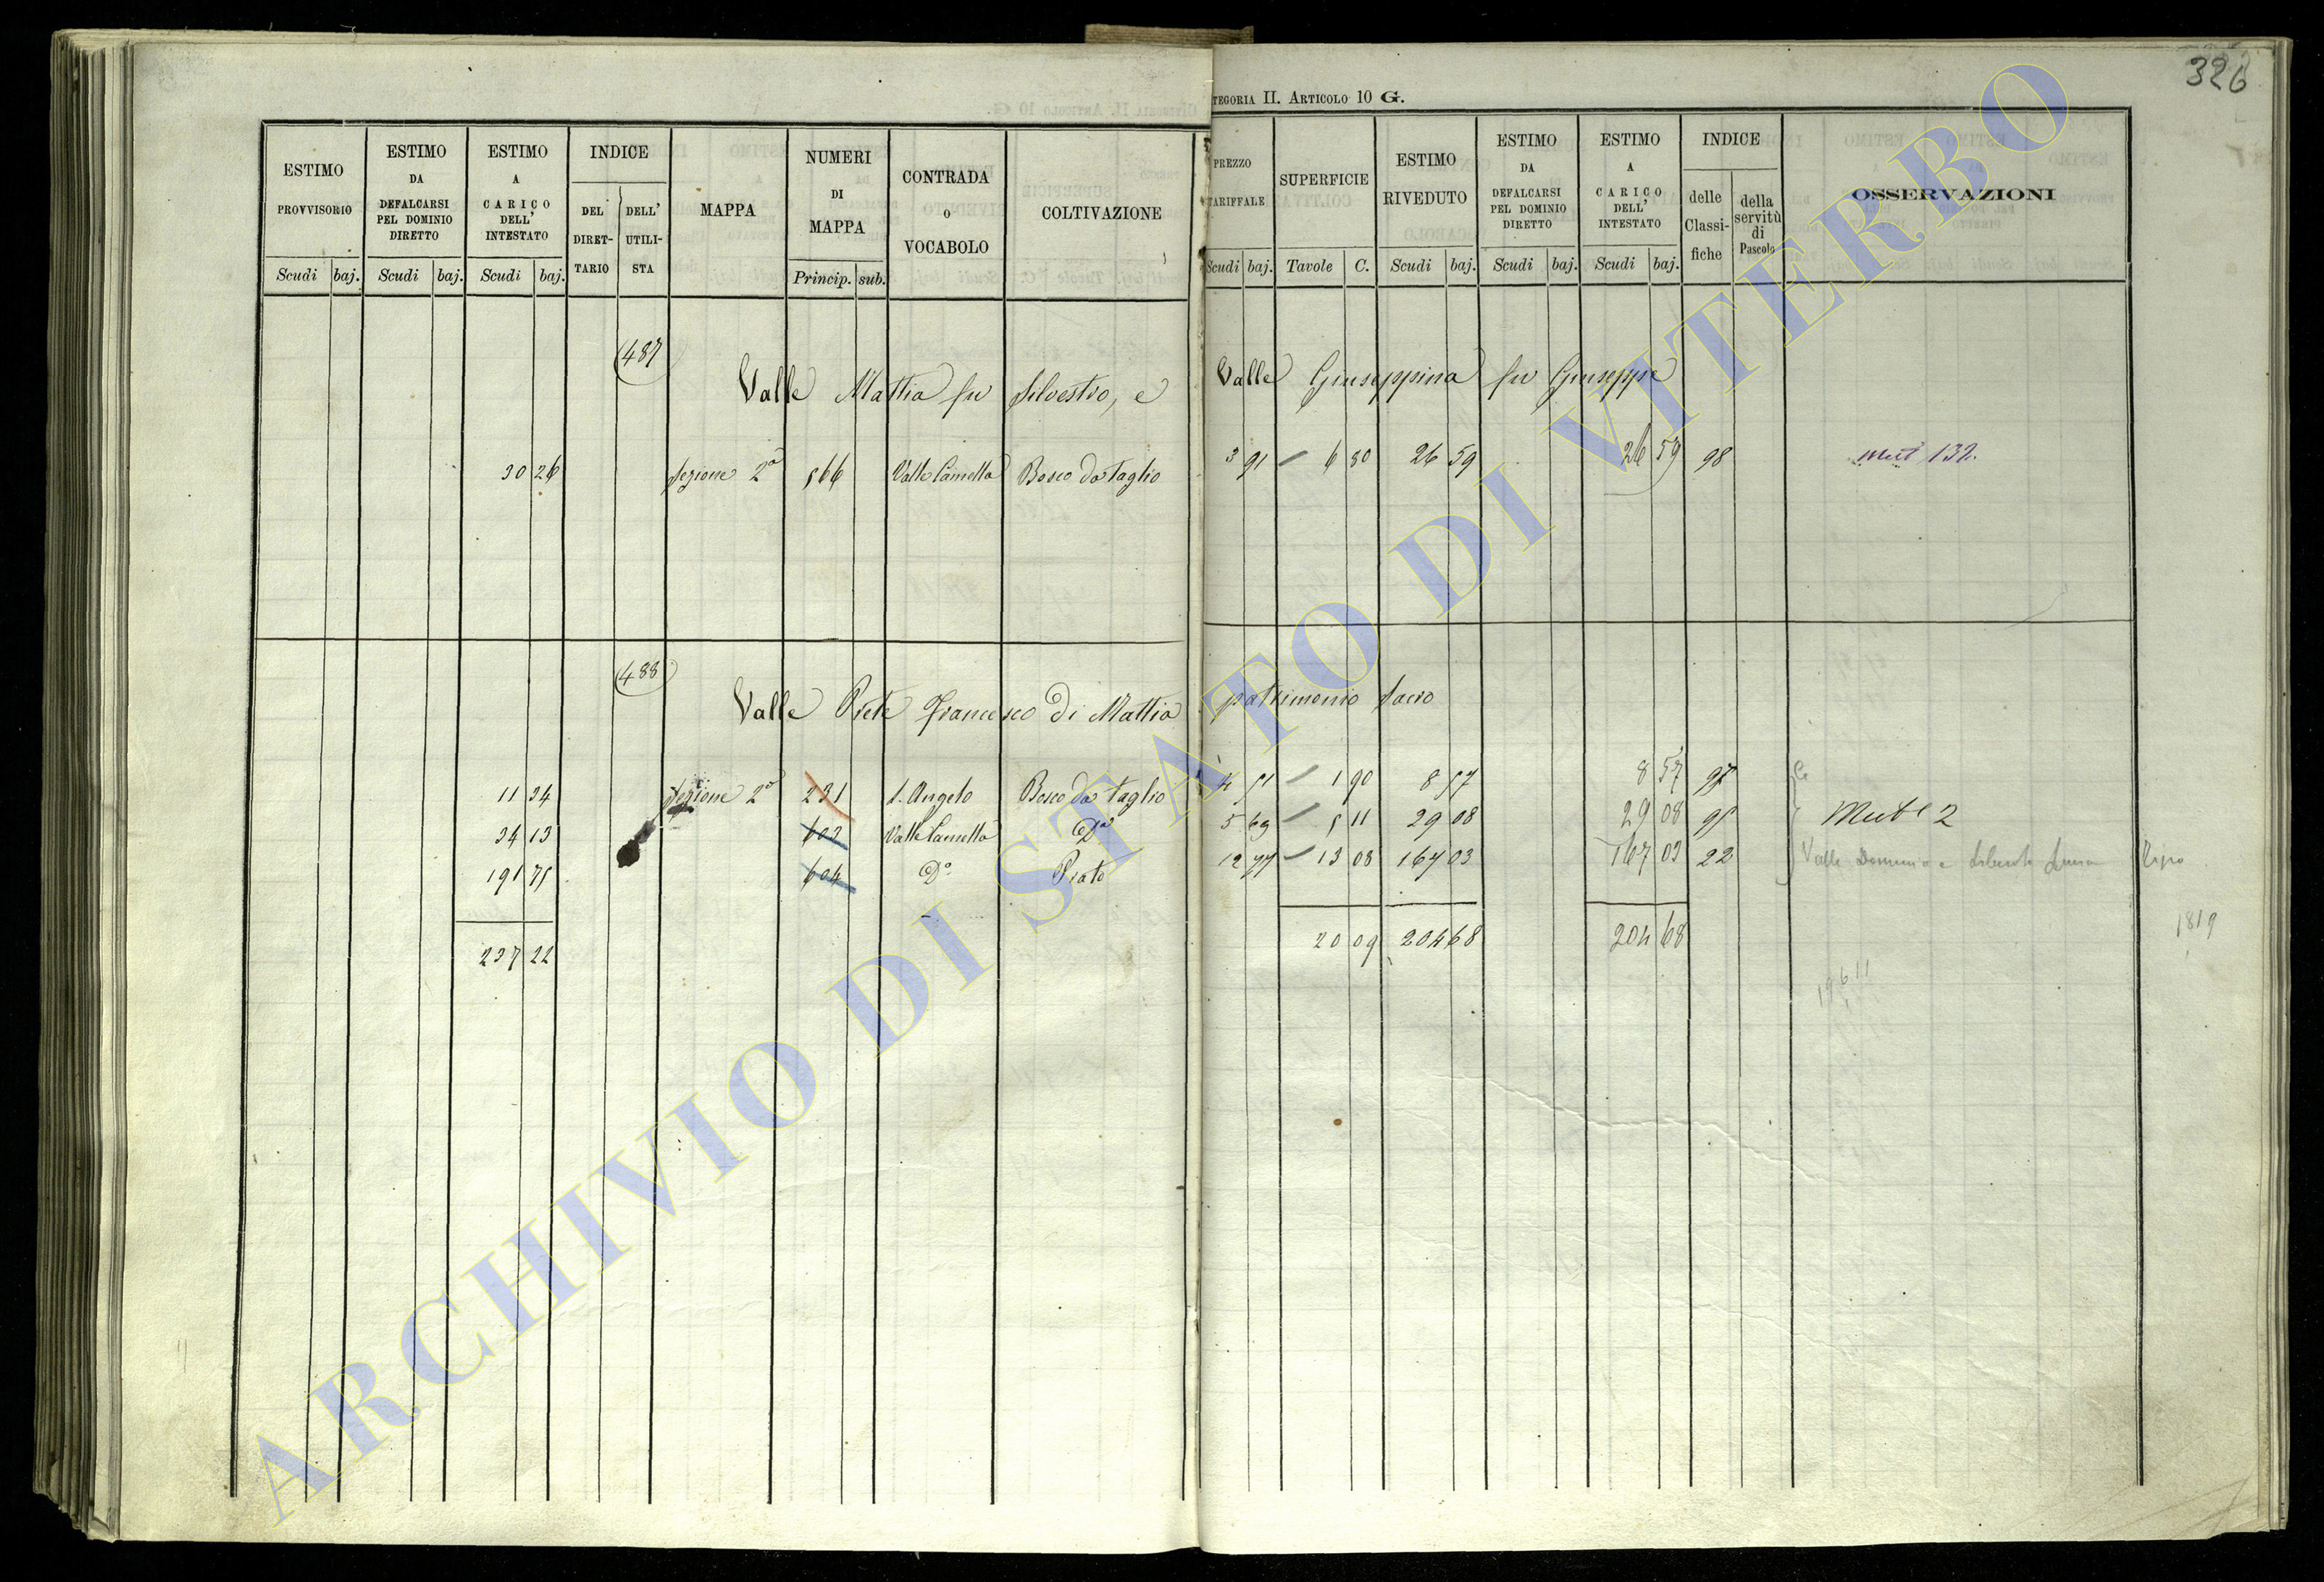 326
TEGORIA II. ARTICOLO 10 G.
ESTIMO PROVVISORIO
ESTIMO DA DEFALCARSI PEL DOMINIO DIRETTO
ESTIMO A CARICO DELL' INTESTATO
INDICE
DEL DIRET-TARIO
DELL' UTILI-STA
MAPPA
NUMERI DI MAPPA
CONTRADA O VOCABOLO
COLTIVAZIONE
PREZZO TARIFFALE
SUPERFICIE
ESTIMO RIVEDUTO
ESTIMO DA DEFALCARSI PEL DOMINIO DIRETTO
ESTIMO A CARICO DELL' INTESTATO
INDICE
delle Classi-fiche
della servitù di Pascolo
OSSERVAZIONI
Scudi baj. Scudi baj. Scudi baj. Princip. sub. Scudi baj. Tavole C. Scudi baj. Scudi baj. Scudi baj.
487
Valle Mattia fu Silvestro, e Valle Giuseppina fu Giuseppe
30 26 Sezione 2a 566 Valle Camella Bosco da taglio 3 91 6 80 26 59 26 59 98 Mut 132.
488
Valle Prete Francesco di Mattia patrimonio sacro
11 34 Sezione 2a 231 S. Angelo Bosco da taglio 4 51 1 90 8 57 8 57 97
34 13 603 Valle Camella Do 5 69 5 11 29 08 29 08 95 Mut 2
191 75 604 Do Prato 12 77 13 08 167 03 167 03 22 Valle Domenico e
237 22 20 09 204 68 204 68
1819
19611
ARCHIVIO DI STATO DI VITERBO